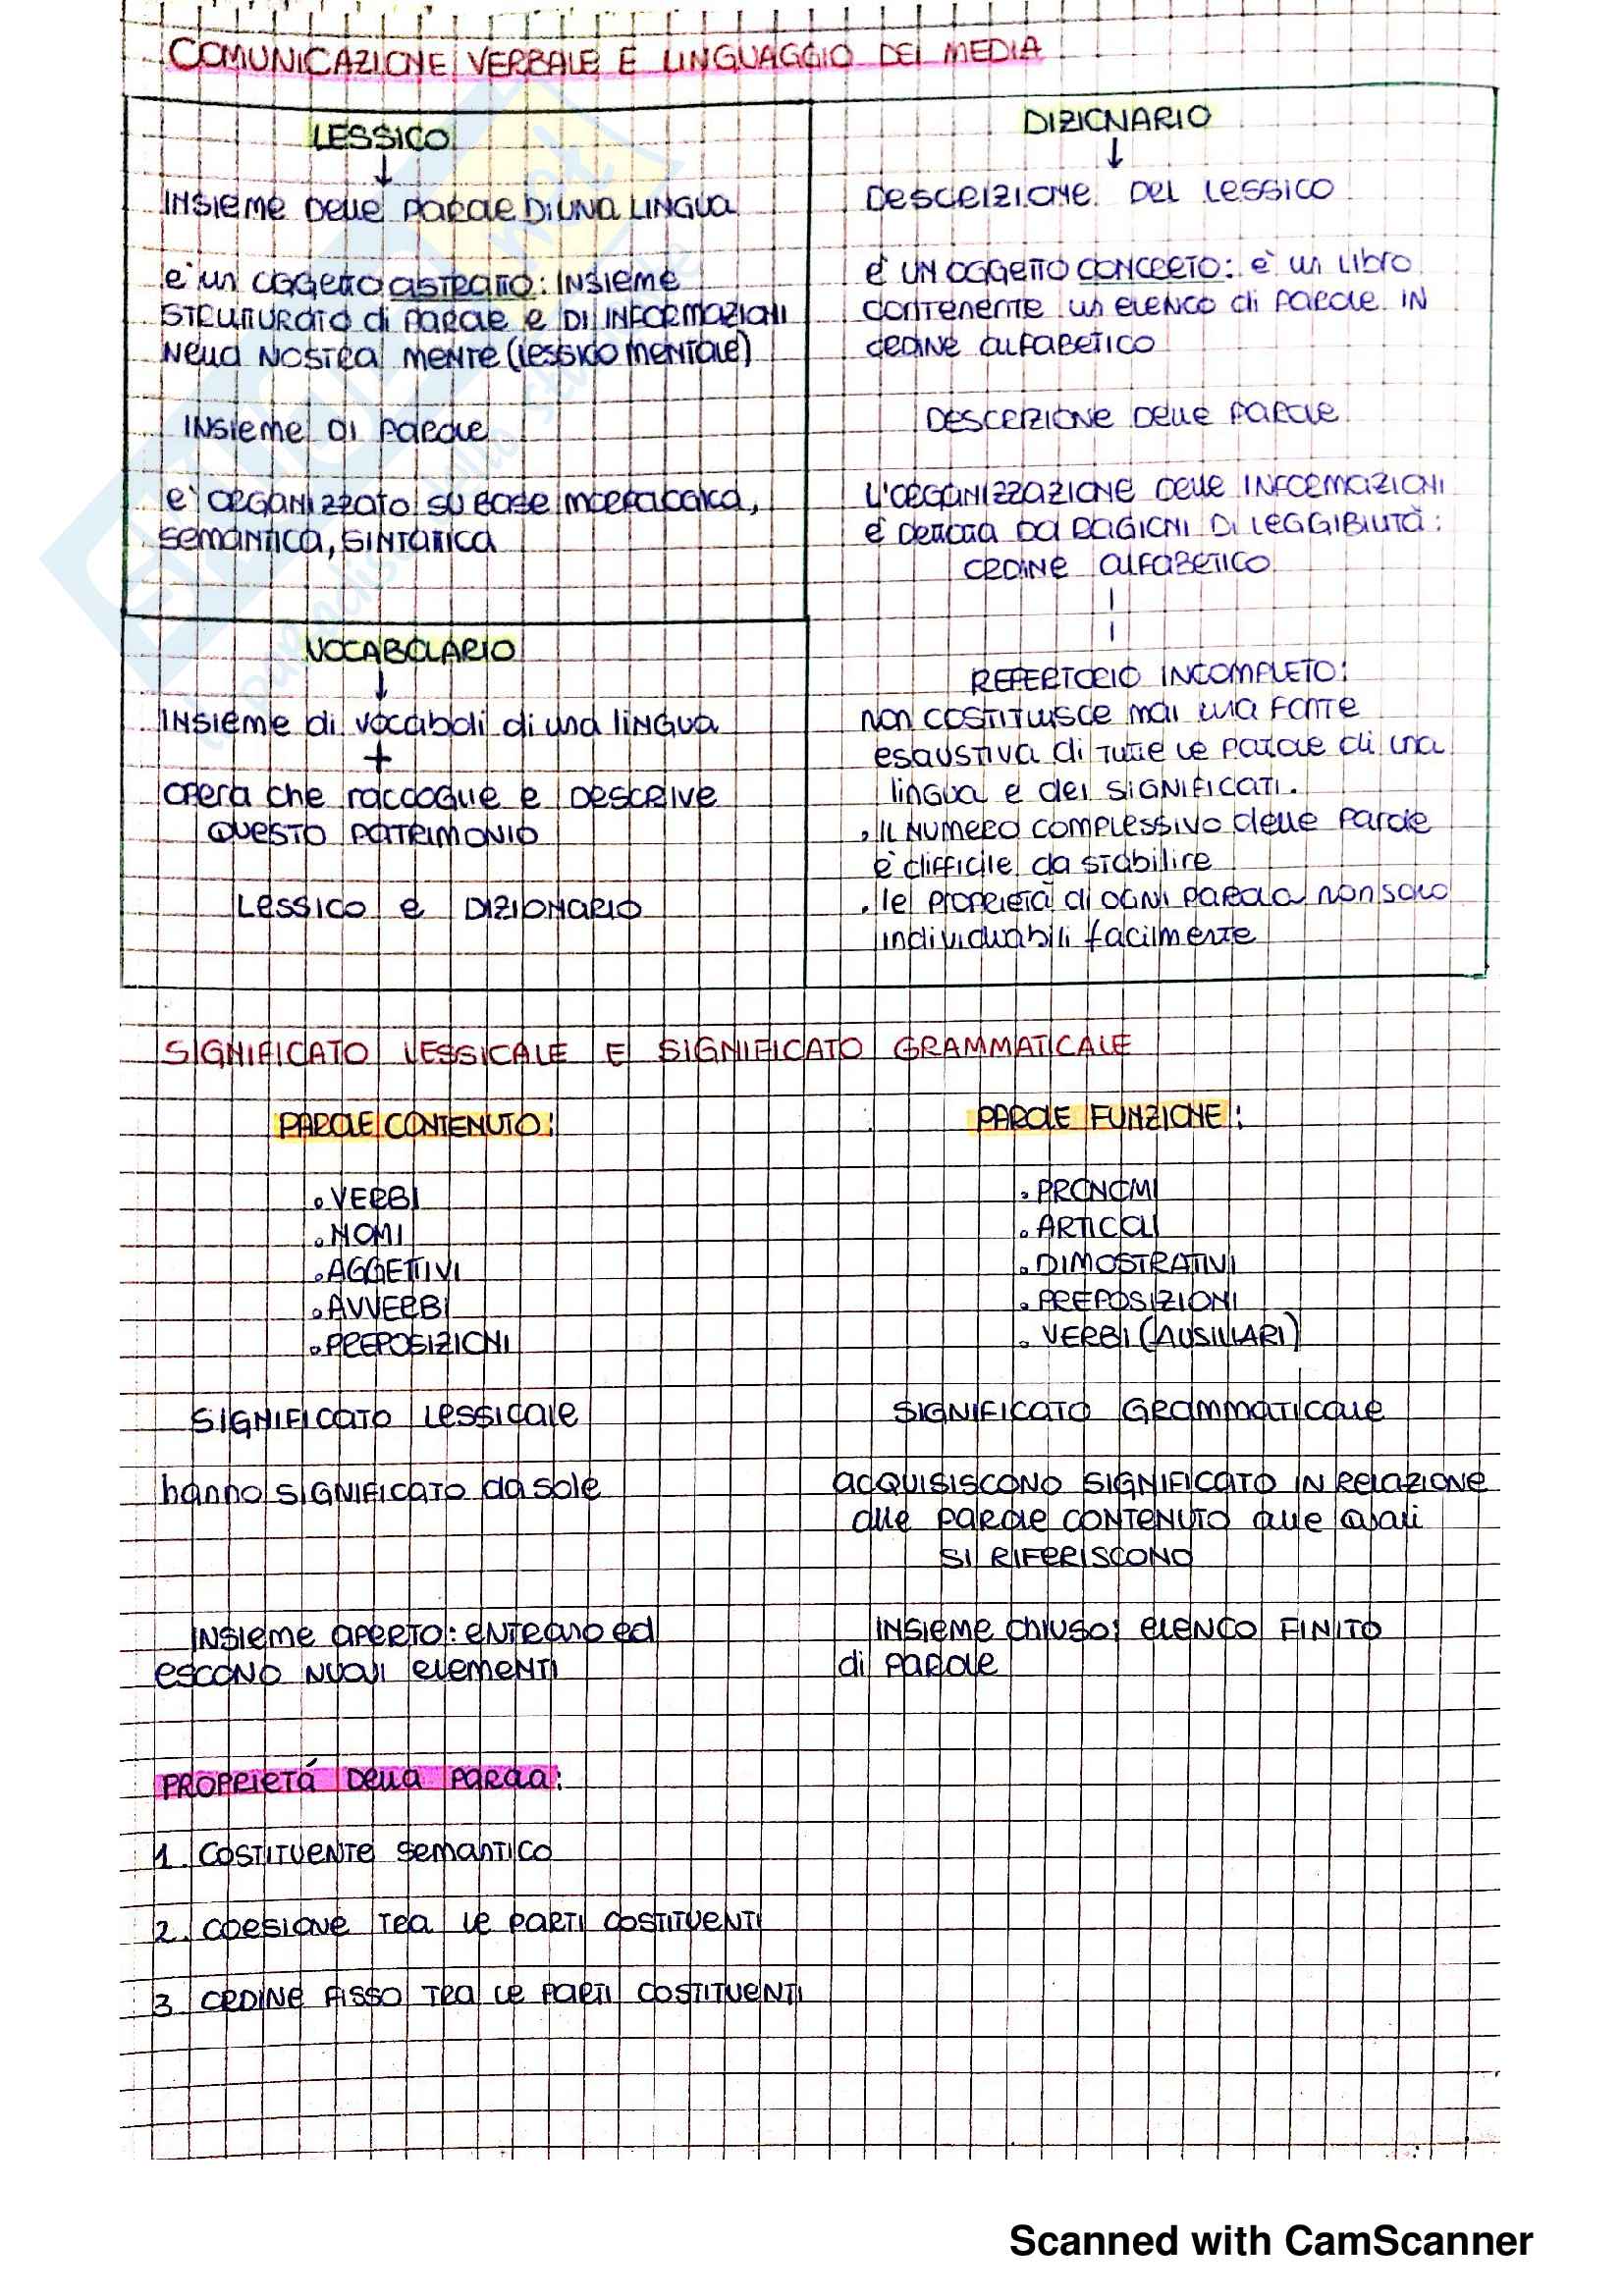 COMUNICAZIONE VERBALE E LINGUAGGIO DEI MEDIA
LESSICO
↓
INSIEME DELLE PAROLE DI UNA LINGUA
è un oggetto astratto: insieme
strutturato di parole e di informazioni
nella nostra mente (lessico mentale)
INSIEME DI PAROLE
è organizzato su base morfologica,
semantica, sintattica
VOCABOLARIO
↓
INSIEME di vocaboli di una lingua
+
opera che raccoglie e descrive
questo patrimonio
LESSICO e DIZIONARIO
DIZIONARIO
↓
DESCRIZIONE DEL LESSICO
è un oggetto concreto: è un libro
contenente un elenco di parole in
ordine alfabetico
DESCRIZIONE DELLE PAROLE
L'organizzazione delle informazioni
è dettata da ragioni di leggibilità:
ordine alfabetico
REPERTORIO INCOMPLETO:
non costituisce mai una fonte
esaustiva di tutte le parole di una
lingua e dei significati.
. il numero complessivo delle parole
è difficile da stabilire
. le proprietà di ogni parola non sono
individuabili facilmente
SIGNIFICATO LESSICALE E SIGNIFICATO GRAMMATICALE
PAROLE CONTENUTO:
. VERBI
. NOMI
. AGGETTIVI
. AVVERBI
. PREPOSIZIONI
SIGNIFICATO LESSICALE
hanno significato da sole
INSIEME APERTO: entrano ed
escono nuovi elementi
PAROLE FUNZIONE:
. PRONOMI
. ARTICOLI
. DIMOSTRATIVI
. PREPOSIZIONI
. VERBI (AUSILIARI)
SIGNIFICATO GRAMMATICALE
acquisiscono significato in relazione
alle parole contenuto alle quali
si riferiscono
INSIEME CHIUSO: elenco finito
di parole
PROPRIETÁ DELLA PAROLA:
1. COSTITUENTE SEMANTICO
2. COESIONE TRA LE PARTI COSTITUENTI
3 ORDINE FISSO TRA LE PARTI COSTITUENTI
Scanned with CamScanner